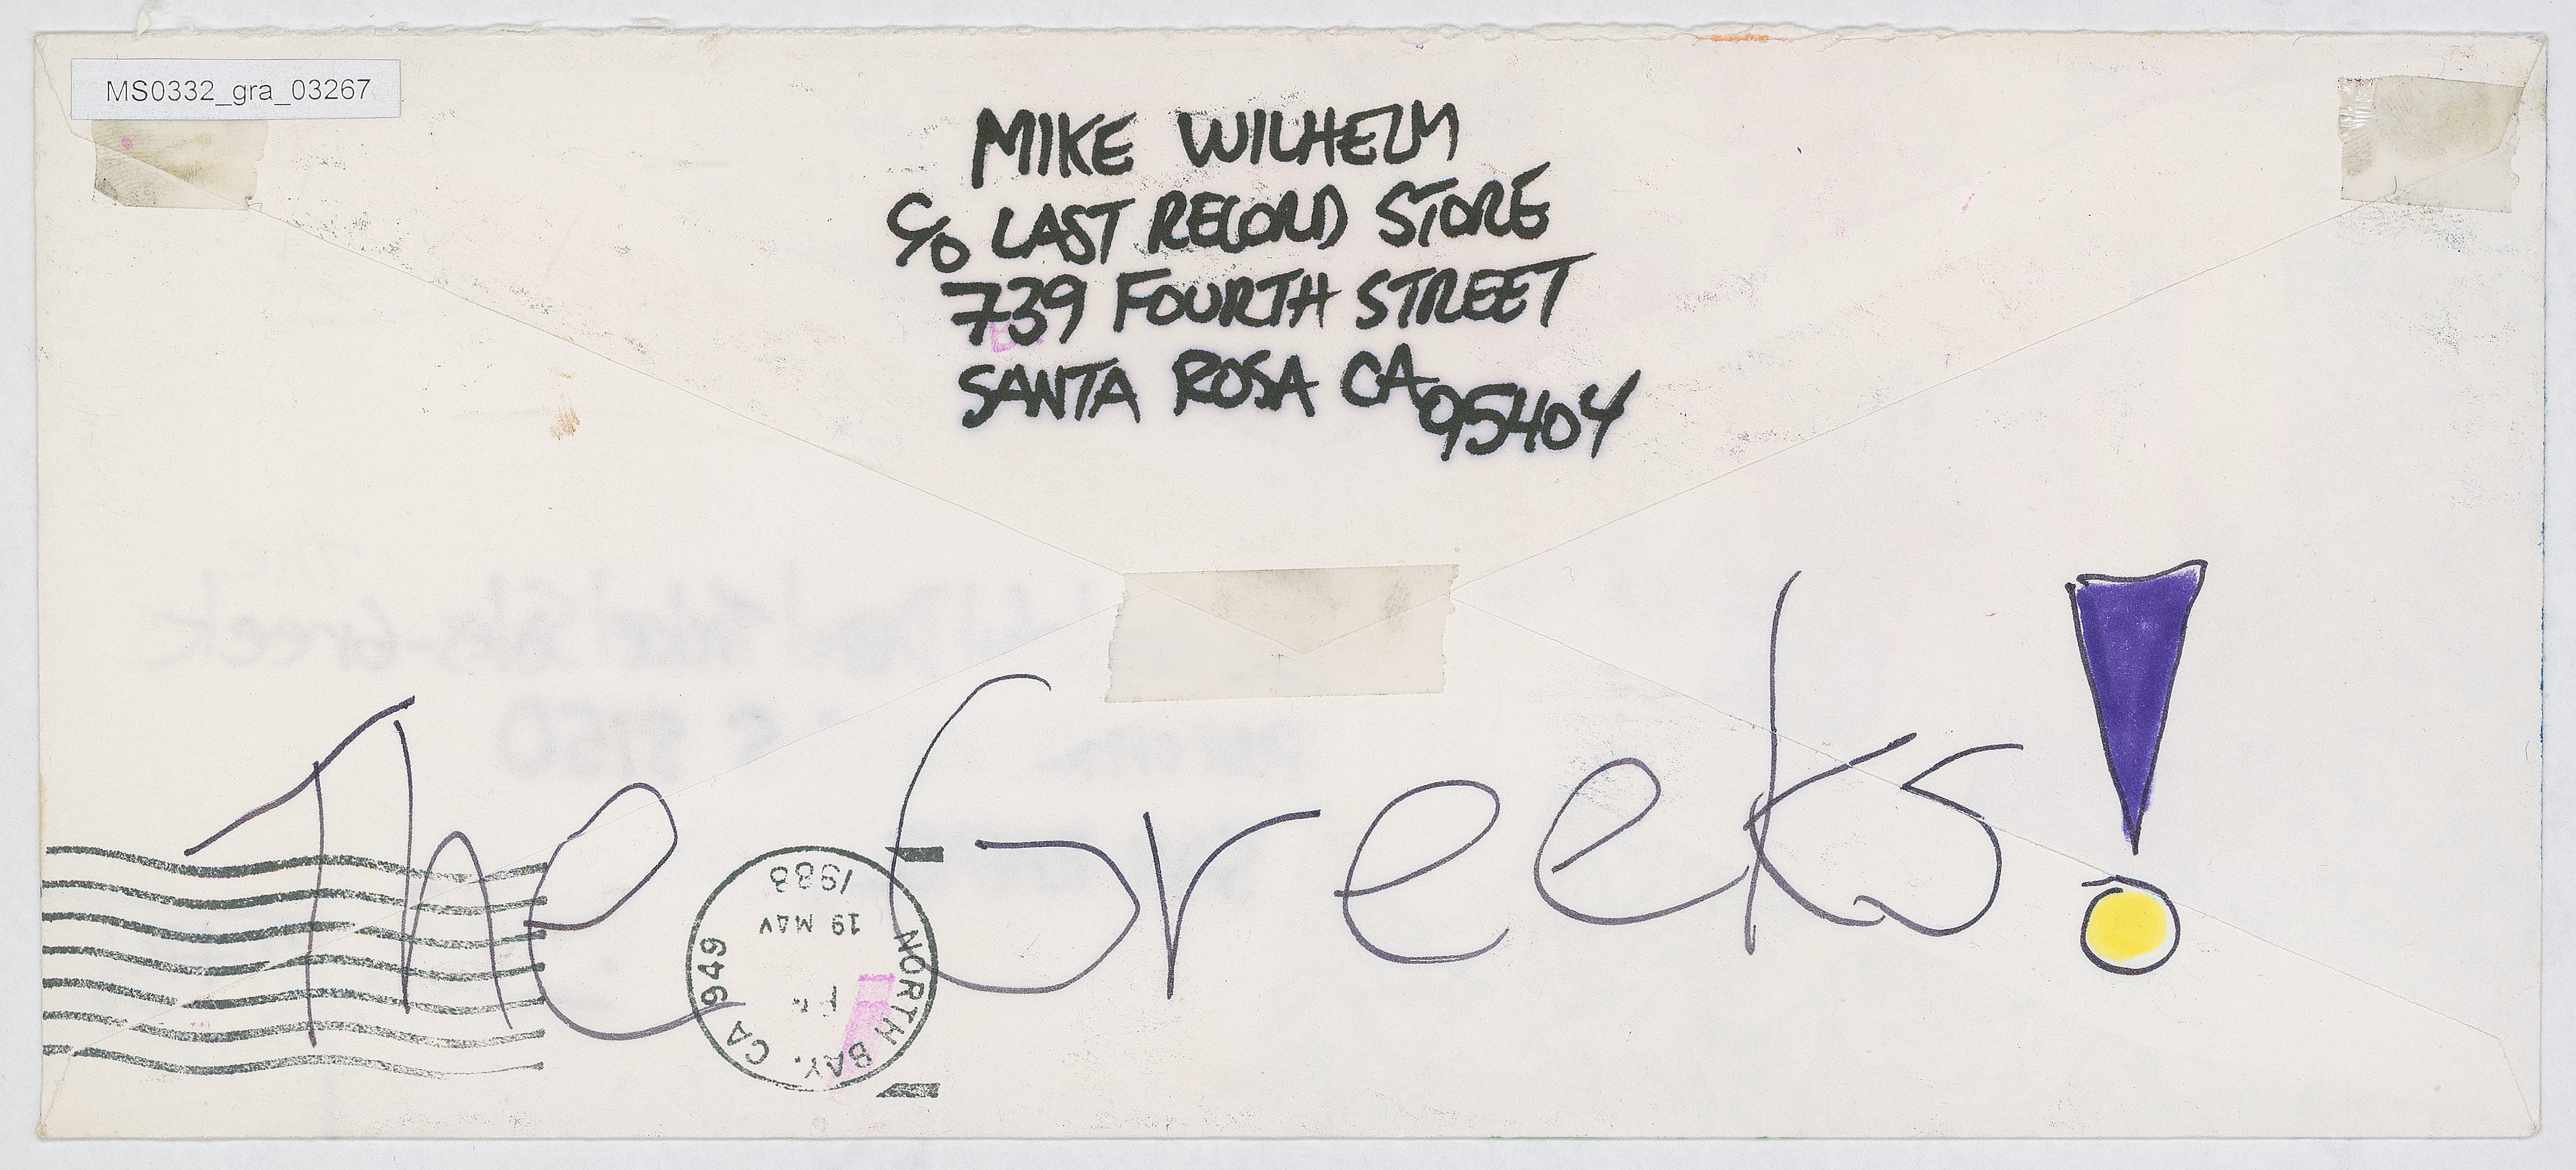 MS0332_gra_03267
MIKE WILHELM
C/O LAST RECORD STORE
739 FOURTH STREET
SANTA ROSA CA 95404
The Greeks!
NORTH BAY, CA 949
19 MAY
1988